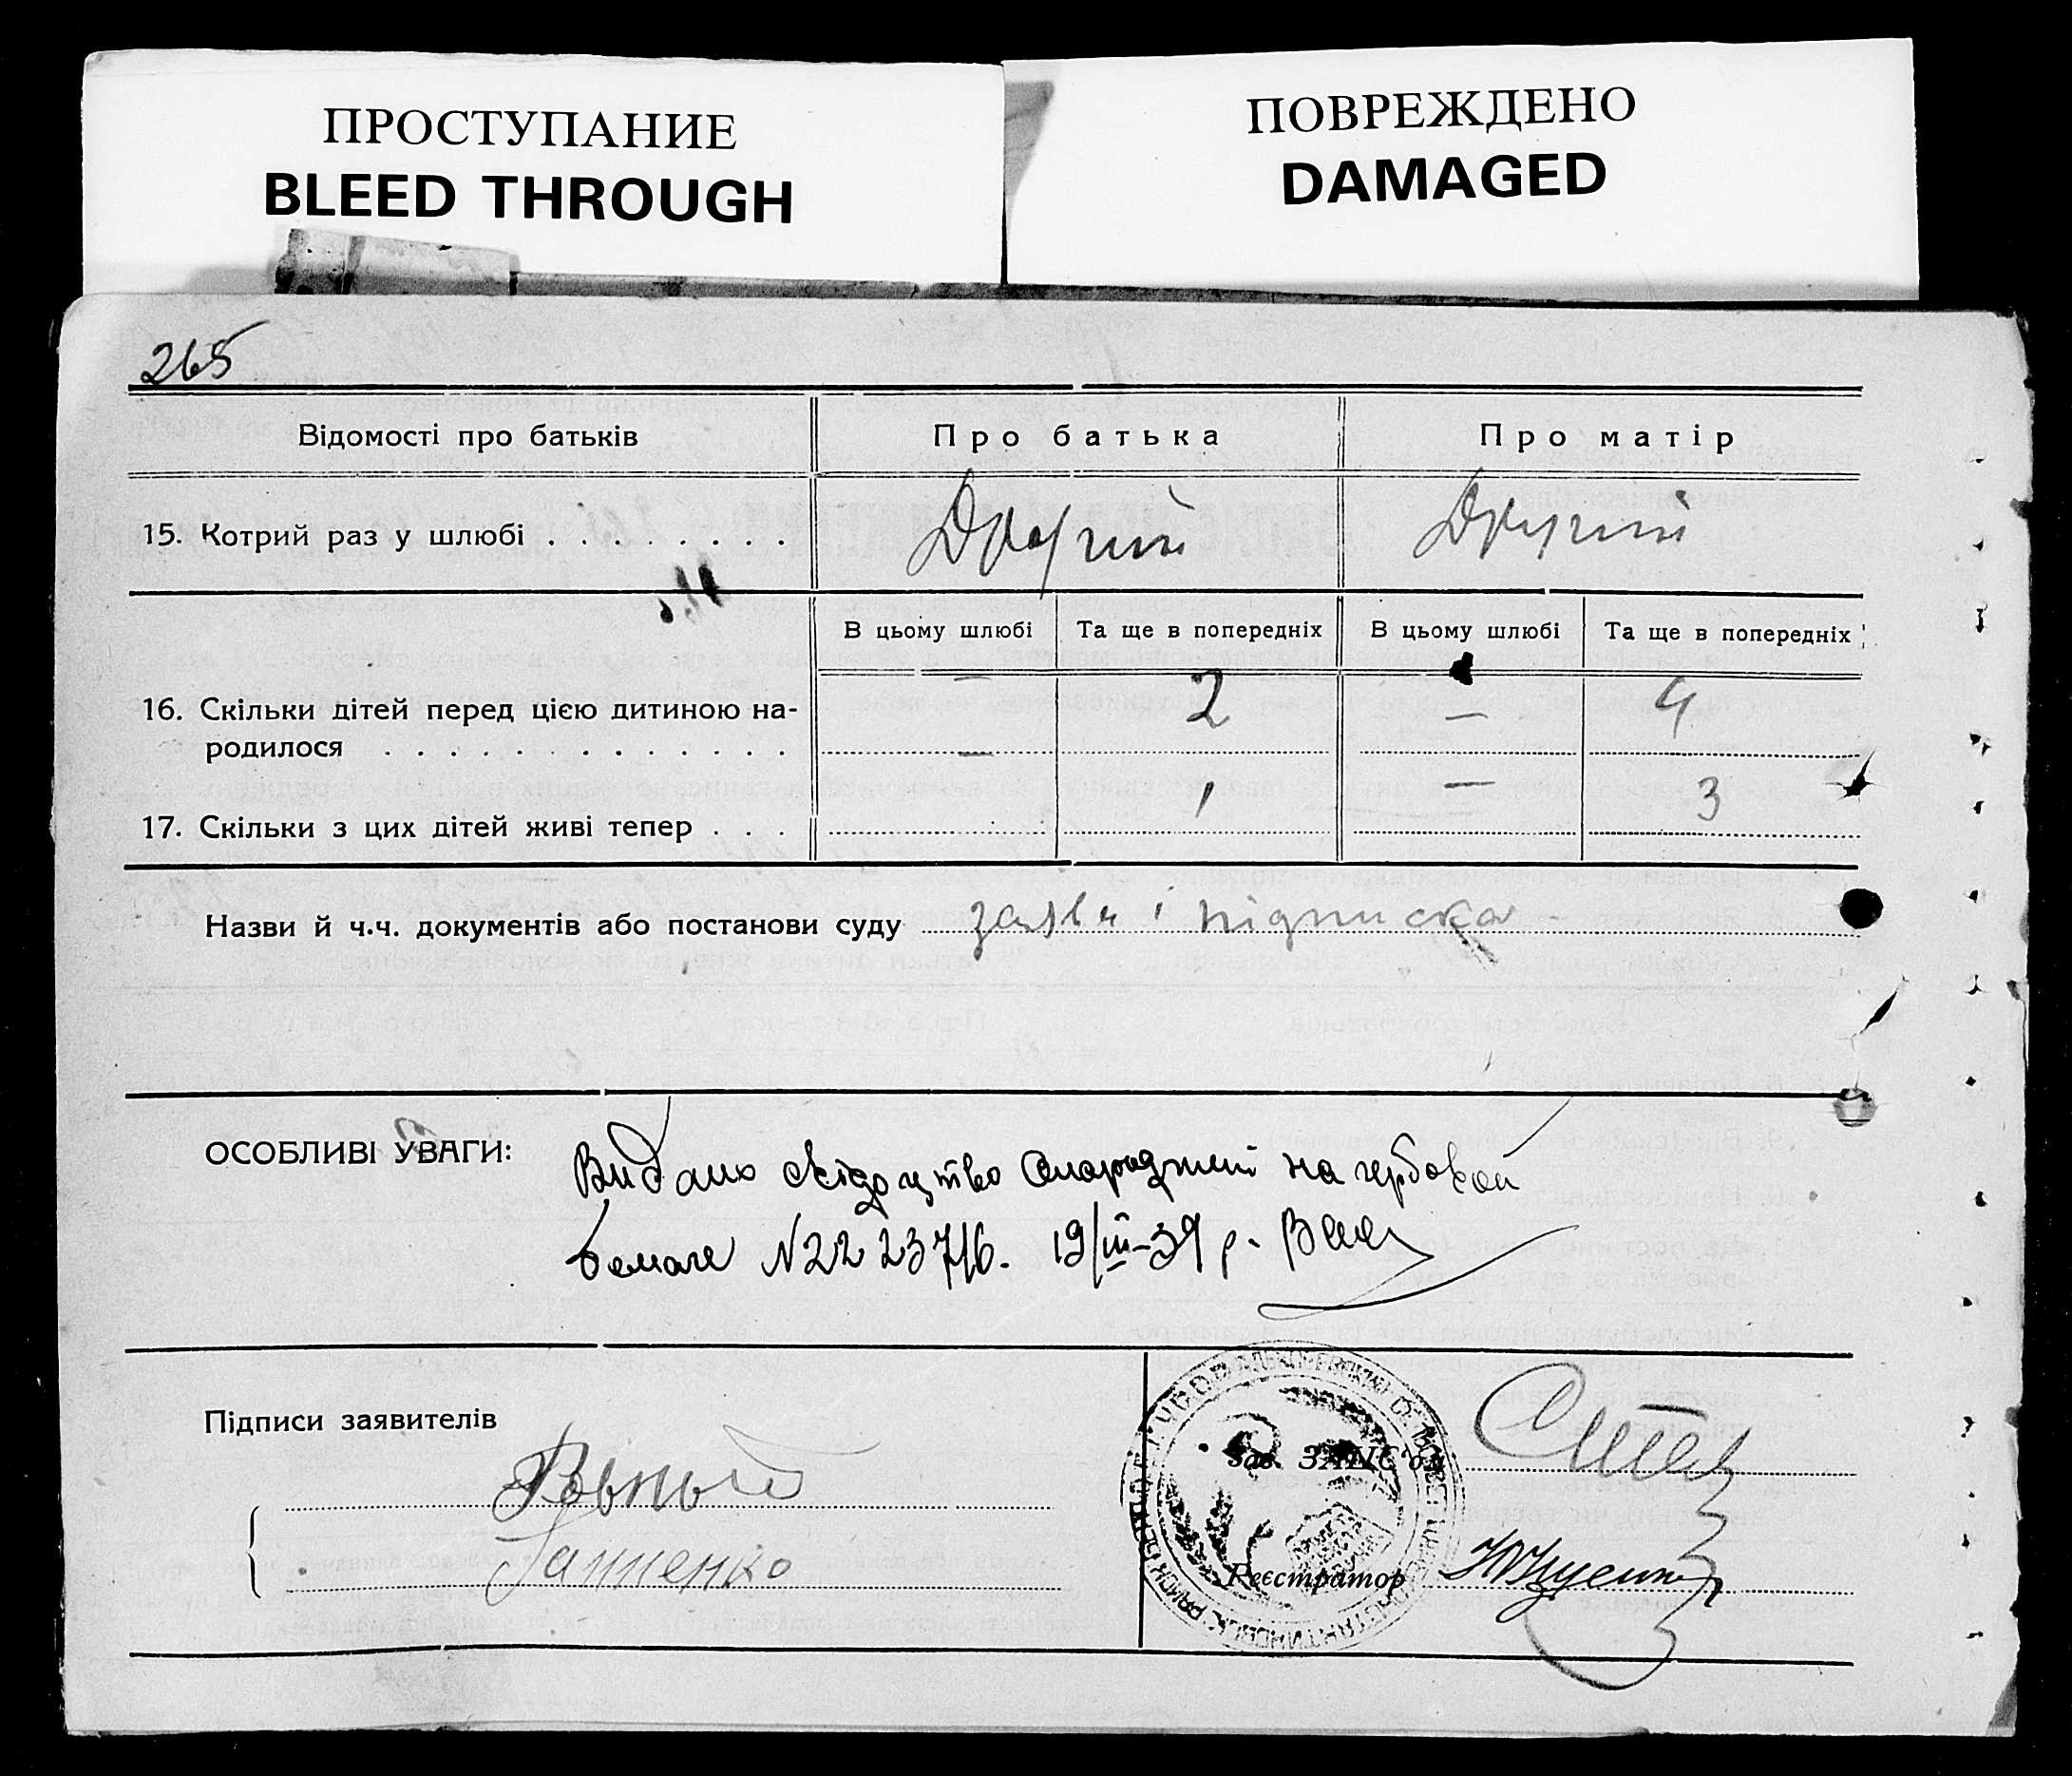 ПРОСТУПАНИЕ
BLEED THROUGH
ПОВРЕЖДЕНО
DAMAGED
265
Відомості про батьків Про батька Про матір
15. Котрий раз у шлюбі . . . . . . . . Другий Другий
В цьому шлюбі Та ще в попередніх В цьому шлюбі Та ще в попередніх
16. Скільки дітей перед цією дитиною на- — 2 — 4
родилося . . . . . . . . . . . . . —
17. Скільки з цих дітей живі тепер . . . 1 — 3
Назви й ч.ч. документів або постанови суду заява і підписка
ОСОБЛИВІ УВАГИ:
Видано свідоцтво на гербовой
бумаге N 22 23716. 19/III-39 р.
Підписи заявителів
Зав. ЗАЦС'ом
Ровный
Ганненко
Реєстратор